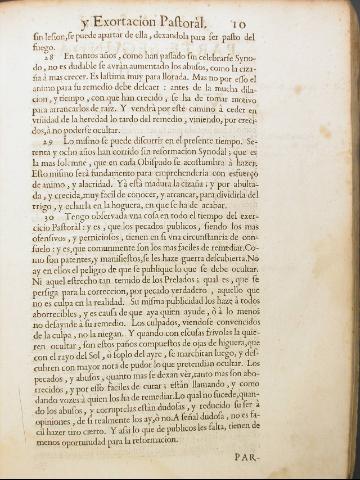 y Exortacion Pastorál. 10
sin lesion, se puede apartar de ella, dexandola para ser pasto del
fuego.
28 En tantos años, como han passado sin celebrarse Syno-
do, no es dudable se avràn aumentado los abusos, como la ciza-
ña à mas crecer. Es lastima muy para llorada. Mas no por esso el
animo para su remedio debe descaer: antes de la mucha dila-
cion, y tiempo, con que han crecido, se ha de tomar motivo
para arrancarlos de raiz. Y vendrá por esté camino à ceder en
vtilidad de la heredad lo tardo del remedio, viniendo, por creci-
dos, à no poderse ocultar.
29 Lo mismo se puede discurrir en el presente tiempo. Se-
tenta y ocho años han corrido sin reformacion Synodal; que es
la mas solemne, que en cada Obispado se acostumbra à hazer.
Esto mismo serà fundamento para emprehenderla con esfuerço
de animo, y alacridad. Yà està madura la cizaña; y por abulta-
da, y crecida, muy facil de conocer, y arrancar, para dividirla del
trigo, y echarla en la hoguera, en que se ha de acabar.
30 Tengo observada vna cosa en todo el tiempo del exer-
cicio Pastoral: y es, que los pecados publicos, siendo los mas
ofensivos, y perniciosos, tienen en si vna circunstancia de con-
suelo: y es, que comunmente son los mas faciles de remediar. Co-
mo son patentes, y manifiestos, se les haze guerra descubierta. No
ay en ellos el peligro de que se publique lo que se debe ocultar.
Ni aquel estrecho tan temido de los Prelados; qual es, que se
persiga para la correccion, por pecado verdadero, aquello que
no es culpa en la realidad. Su misma publicidad los haze à todos
aborrecibles, y es causa de que aya quien ayude, ò à lo menos
no desayude à su remedio. Los culpados, viendose convencidos
de la culpa, no la niegan. Y quando con escusas frivolas la quie-
ren ocultar, son estos paños compuestos de ojas de higuera, que
con el rayo del Sol, ò soplo del ayre, se marchitan luego, y des-
cubren con mayor nota de pudor lo que pretendian ocultar. Los
pecados, y abusos, quanto mas se dexan vèr, tanto mas son abo-
rrecidos, y por esso faciles de curar: estàn llamando, y como
dando vozes à quien los ha de remediar. Lo qual no sucede, quan-
do los abusos, y corruptelas estàn dudosas, y reducido su ser à
opiniones, de si realmente los ay, ò no. A señal dudosa, no es fa-
cil hazer tiro cierto. Y assi lo que de publicos les falta, tienen de
menos oportunidad para la reformacion.
PAR-